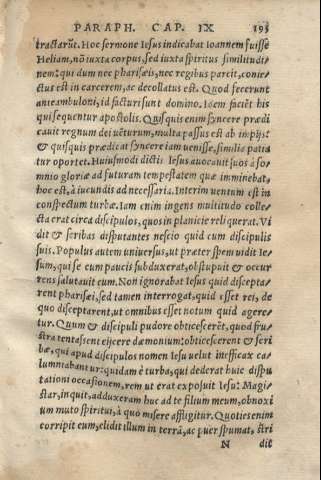 PARAPH. CAP. IX 193
tractarũt. Hoc sermone Iesus indicabat Ioannem fuisse
Heliam, nõ iuxta corpus, sed iuxta spiritus similitudi
nem: qui dum nec pharisæis, nec regibus parcit, coniec
tus est in carcerem, ac decollatus est. Quod fecerunt
anteambuloni, id facturi sunt domino. Idem faciẽt his
qui sequentur apostolis. Quisquis enim syncere prædi
cauit regnum dei uẽturum, multa passus est ab impijs:
& quisquis prædicat syncere iam uenisse, similia patia
tur oportet. Huiusmodi dictis Iesus auocauit suos à so-
mnio gloriæ ad futuram tempestatem quæ imminebat,
hoc est, à iucundis ad necessaria. Interim uentum est in
conspectum turbæ. Iam enim ingens multitudo colle-
cta erat circa discipulos, quos in planicie reliquerat. Vi
dit & scribas disputantes nescio quid cum discipulis
suis. Populus autem uniuersus, ut præter spem uidit Ie-
sum, qui se cum paucis subduxerat, obstupuit & occur
rens salutauit eum. Non ignorabat Iesus quid discepta-
rent pharisæi, sed tamen interrogat, quid esset rei, de
quo disceptarent, ut omnibus esset notum quid agere-
tur. Quum & discipuli pudore obticescerẽt, quod fru-
stra tentassent eijcere dæmonium: obticescerent & scri
bæ, qui apud discipulos nomen Iesu uelut inefficax ca-
lumniabantur: quidam è turba, qui dederat huic dispu
tationi occasionem, rem ut erat exposuit Iesu: Magi-
ster, inquit, adduxeram huc ad te filium meum, obnoxi
um muto spiritui, à quo misere affligitur. Quoties enim
corripit eum, elidit illum in terrã, ac puer spumat, stri
N dit